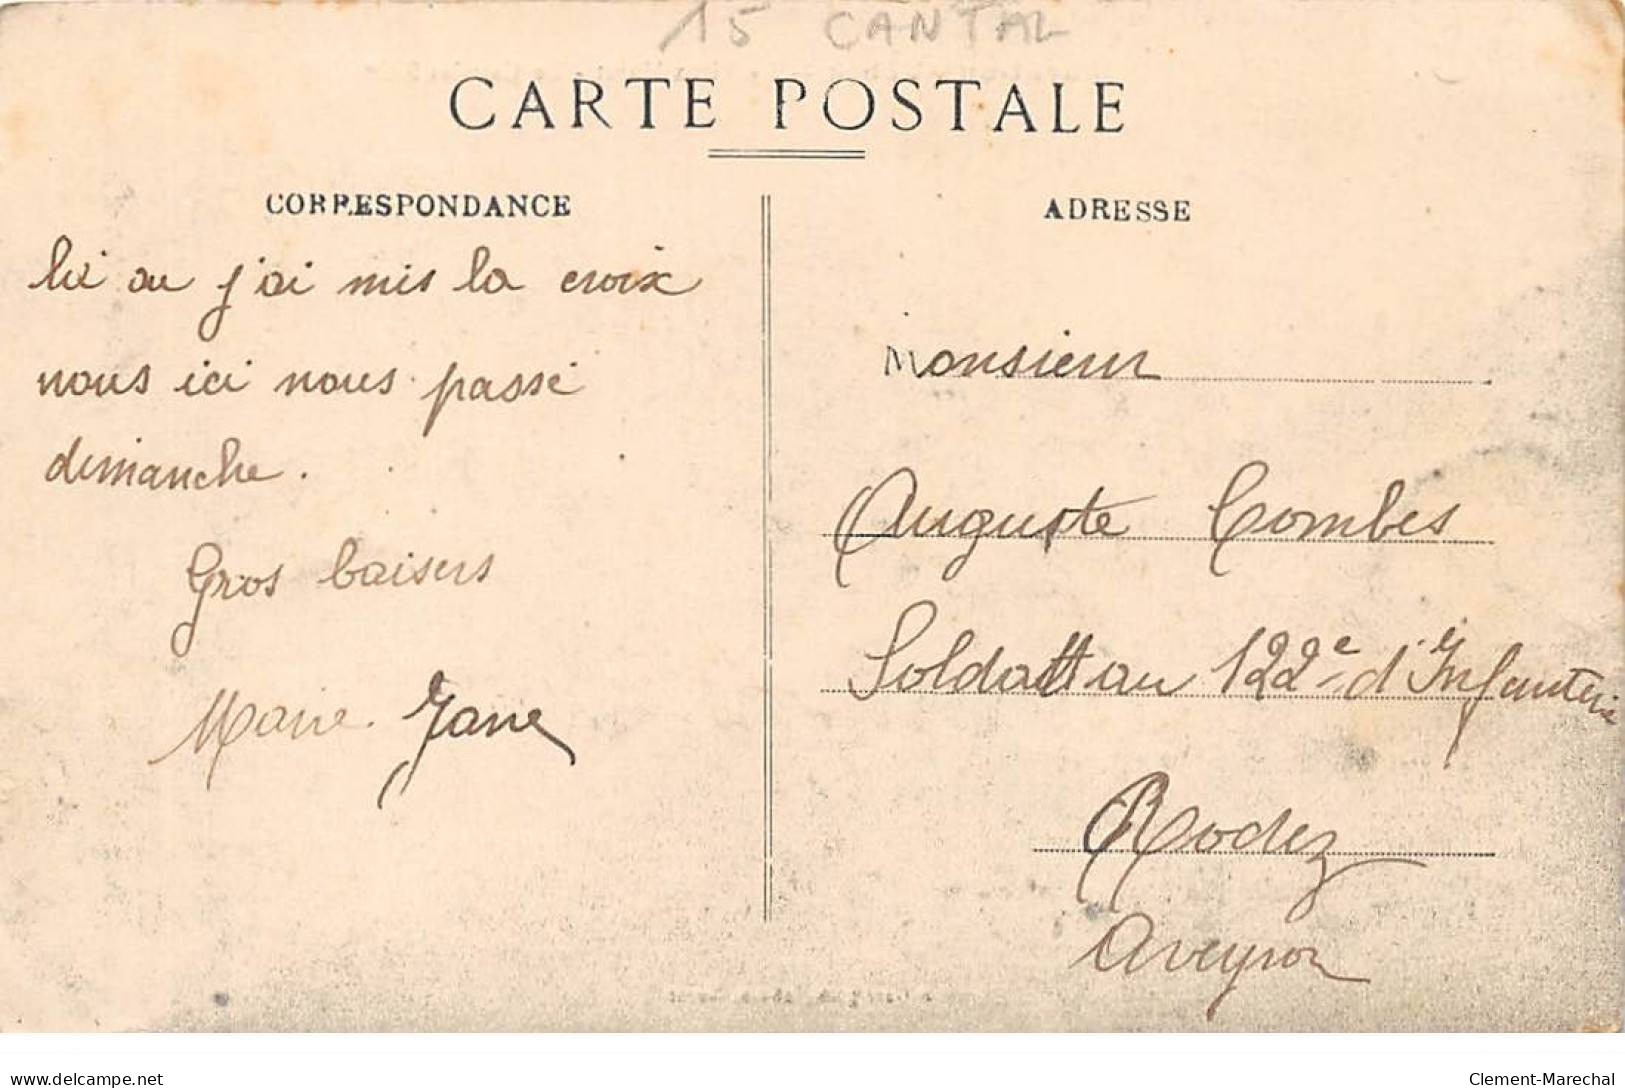 15 CANTAL
CARTE POSTALE
CORRESPONDANCE
ou j'ai mis la croix
nous ici nous passé
dimanche.
Gros baisers
Marie Jane
ADRESSE
Monsieur
Auguste Combes
Soldat au 122e d'Infanterie
Rodez
Aveyron
delcampe.net
Clement-Marechal